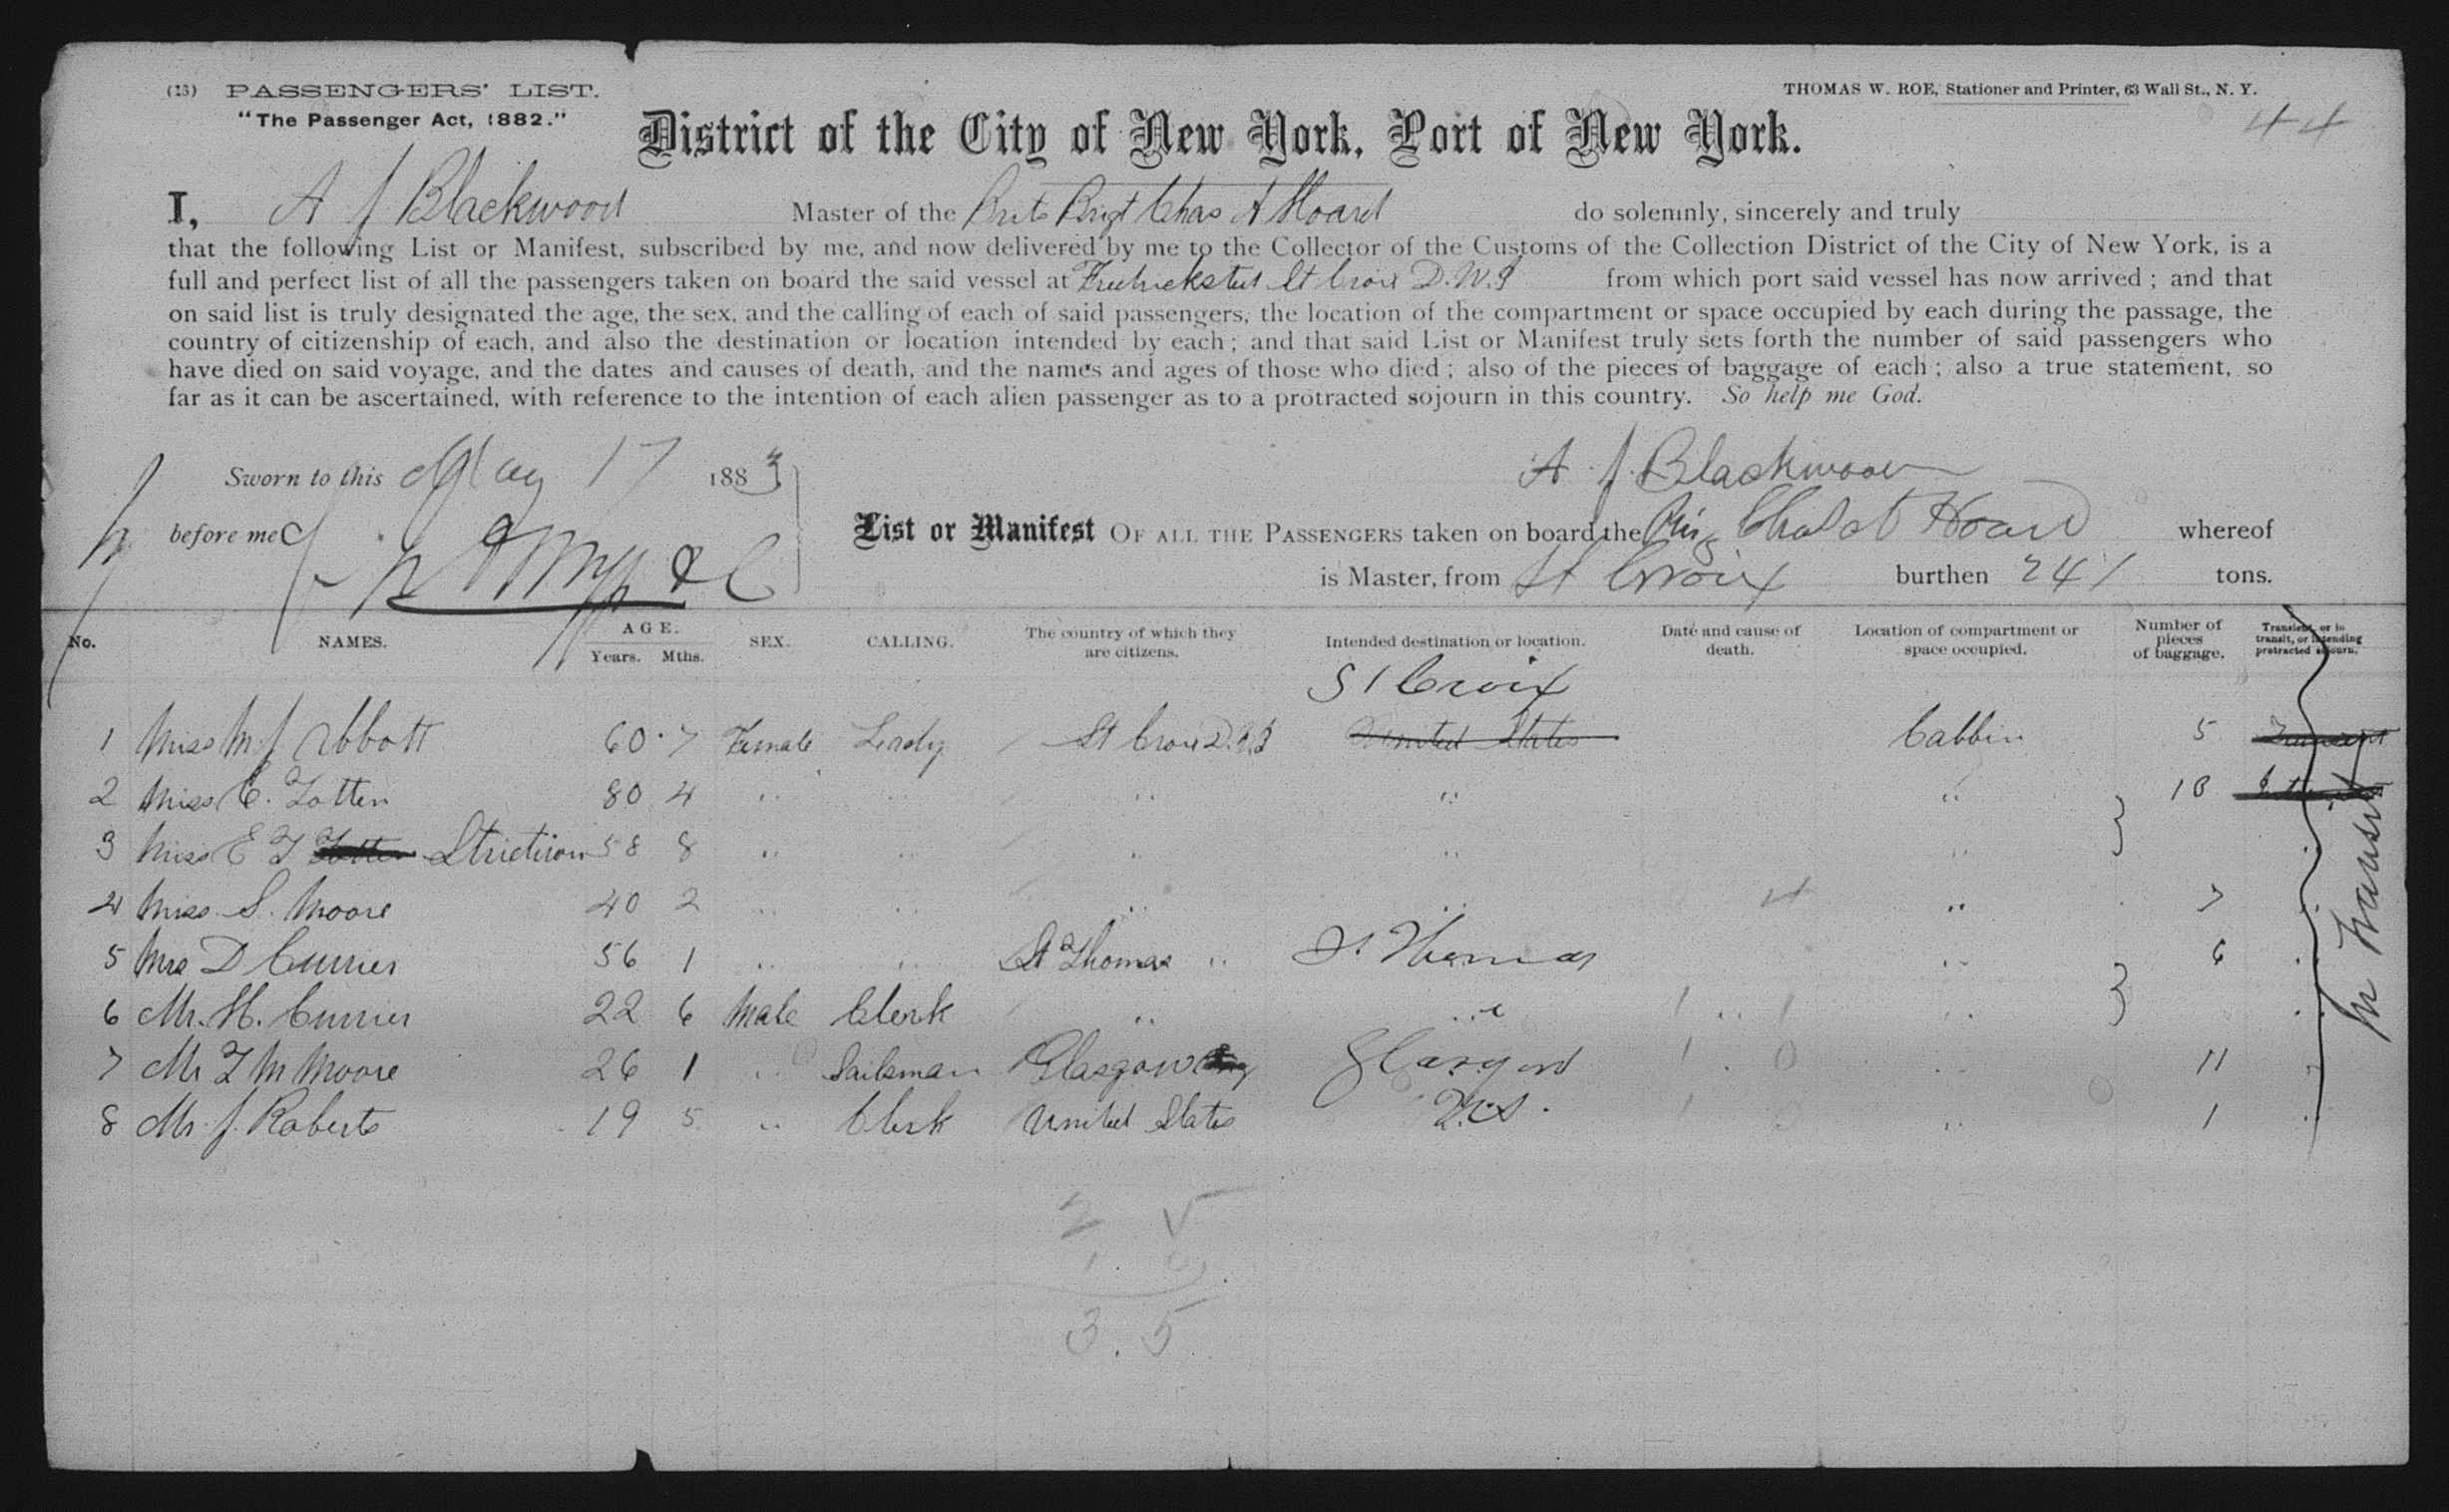 (13) PASSENGERS' LIST.
"The Passenger Act, 1882."
THOMAS W. ROE, Stationer and Printer, 63 Wall St., N. Y.
44
District of the City of New York, Port of New York.
I, A J Blackwood Master of the Brit Brigt Chas A Hoard do solemnly, sincerely and truly
that the following List or Manifest, subscribed by me, and now delivered by me to the Collector of the Customs of the Collection District of the City of New York, is a
full and perfect list of all the passengers taken on board the said vessel at St Croix D.W.I from which port said vessel has now arrived ; and that
on said list is truly designated the age, the sex, and the calling of each of said passengers, the location of the compartment or space occupied by each during the passage, the
country of citizenship of each, and also the destination or location intended by each ; and that said List or Manifest truly sets forth the number of said passengers who
have died on said voyage, and the dates and causes of death, and the names and ages of those who died ; also of the pieces of baggage of each ; also a true statement, so
far as it can be ascertained, with reference to the intention of each alien passenger as to a protracted sojourn in this country. So help me God.
Sworn to this May 17 1883
A. J. Blackwood
before me
List or Manifest OF ALL THE PASSENGERS taken on board the Brig Chas A Hoard whereof
is Master, from St Croix burthen 241 tons.
No. NAMES. AGE. Years. Mths. SEX. CALLING. The country of which they are citizens. Intended destination or location. Date and cause of death. Location of compartment or space occupied. Number of pieces of baggage. Transient, or in transit, or intending protracted sojourn.
St Croix
1 Miss M J Abbott 60 7 Female Lady St Croix D.W.I United States Cabbin 5 Transient
2 Miss C. Totten 80 4 " " " " " 10
3 Miss E T Totten 58 8 " " " " " "
4 Miss S. Moore 40 2 " " " " 4 " 7 "
5 Mrs D Currier 56 1 " " St Thomas " St Thomas " 6 "
6 Mr. H. Currier 22 6 Male Clerk " " " "
7 Mr T M Moore 26 1 " Sailsman Glasgow Glasgow " 11 "
8 Mr. J. Roberts 19 5 " Clerk United States U.S. " 1 "
In Transit
3. 5